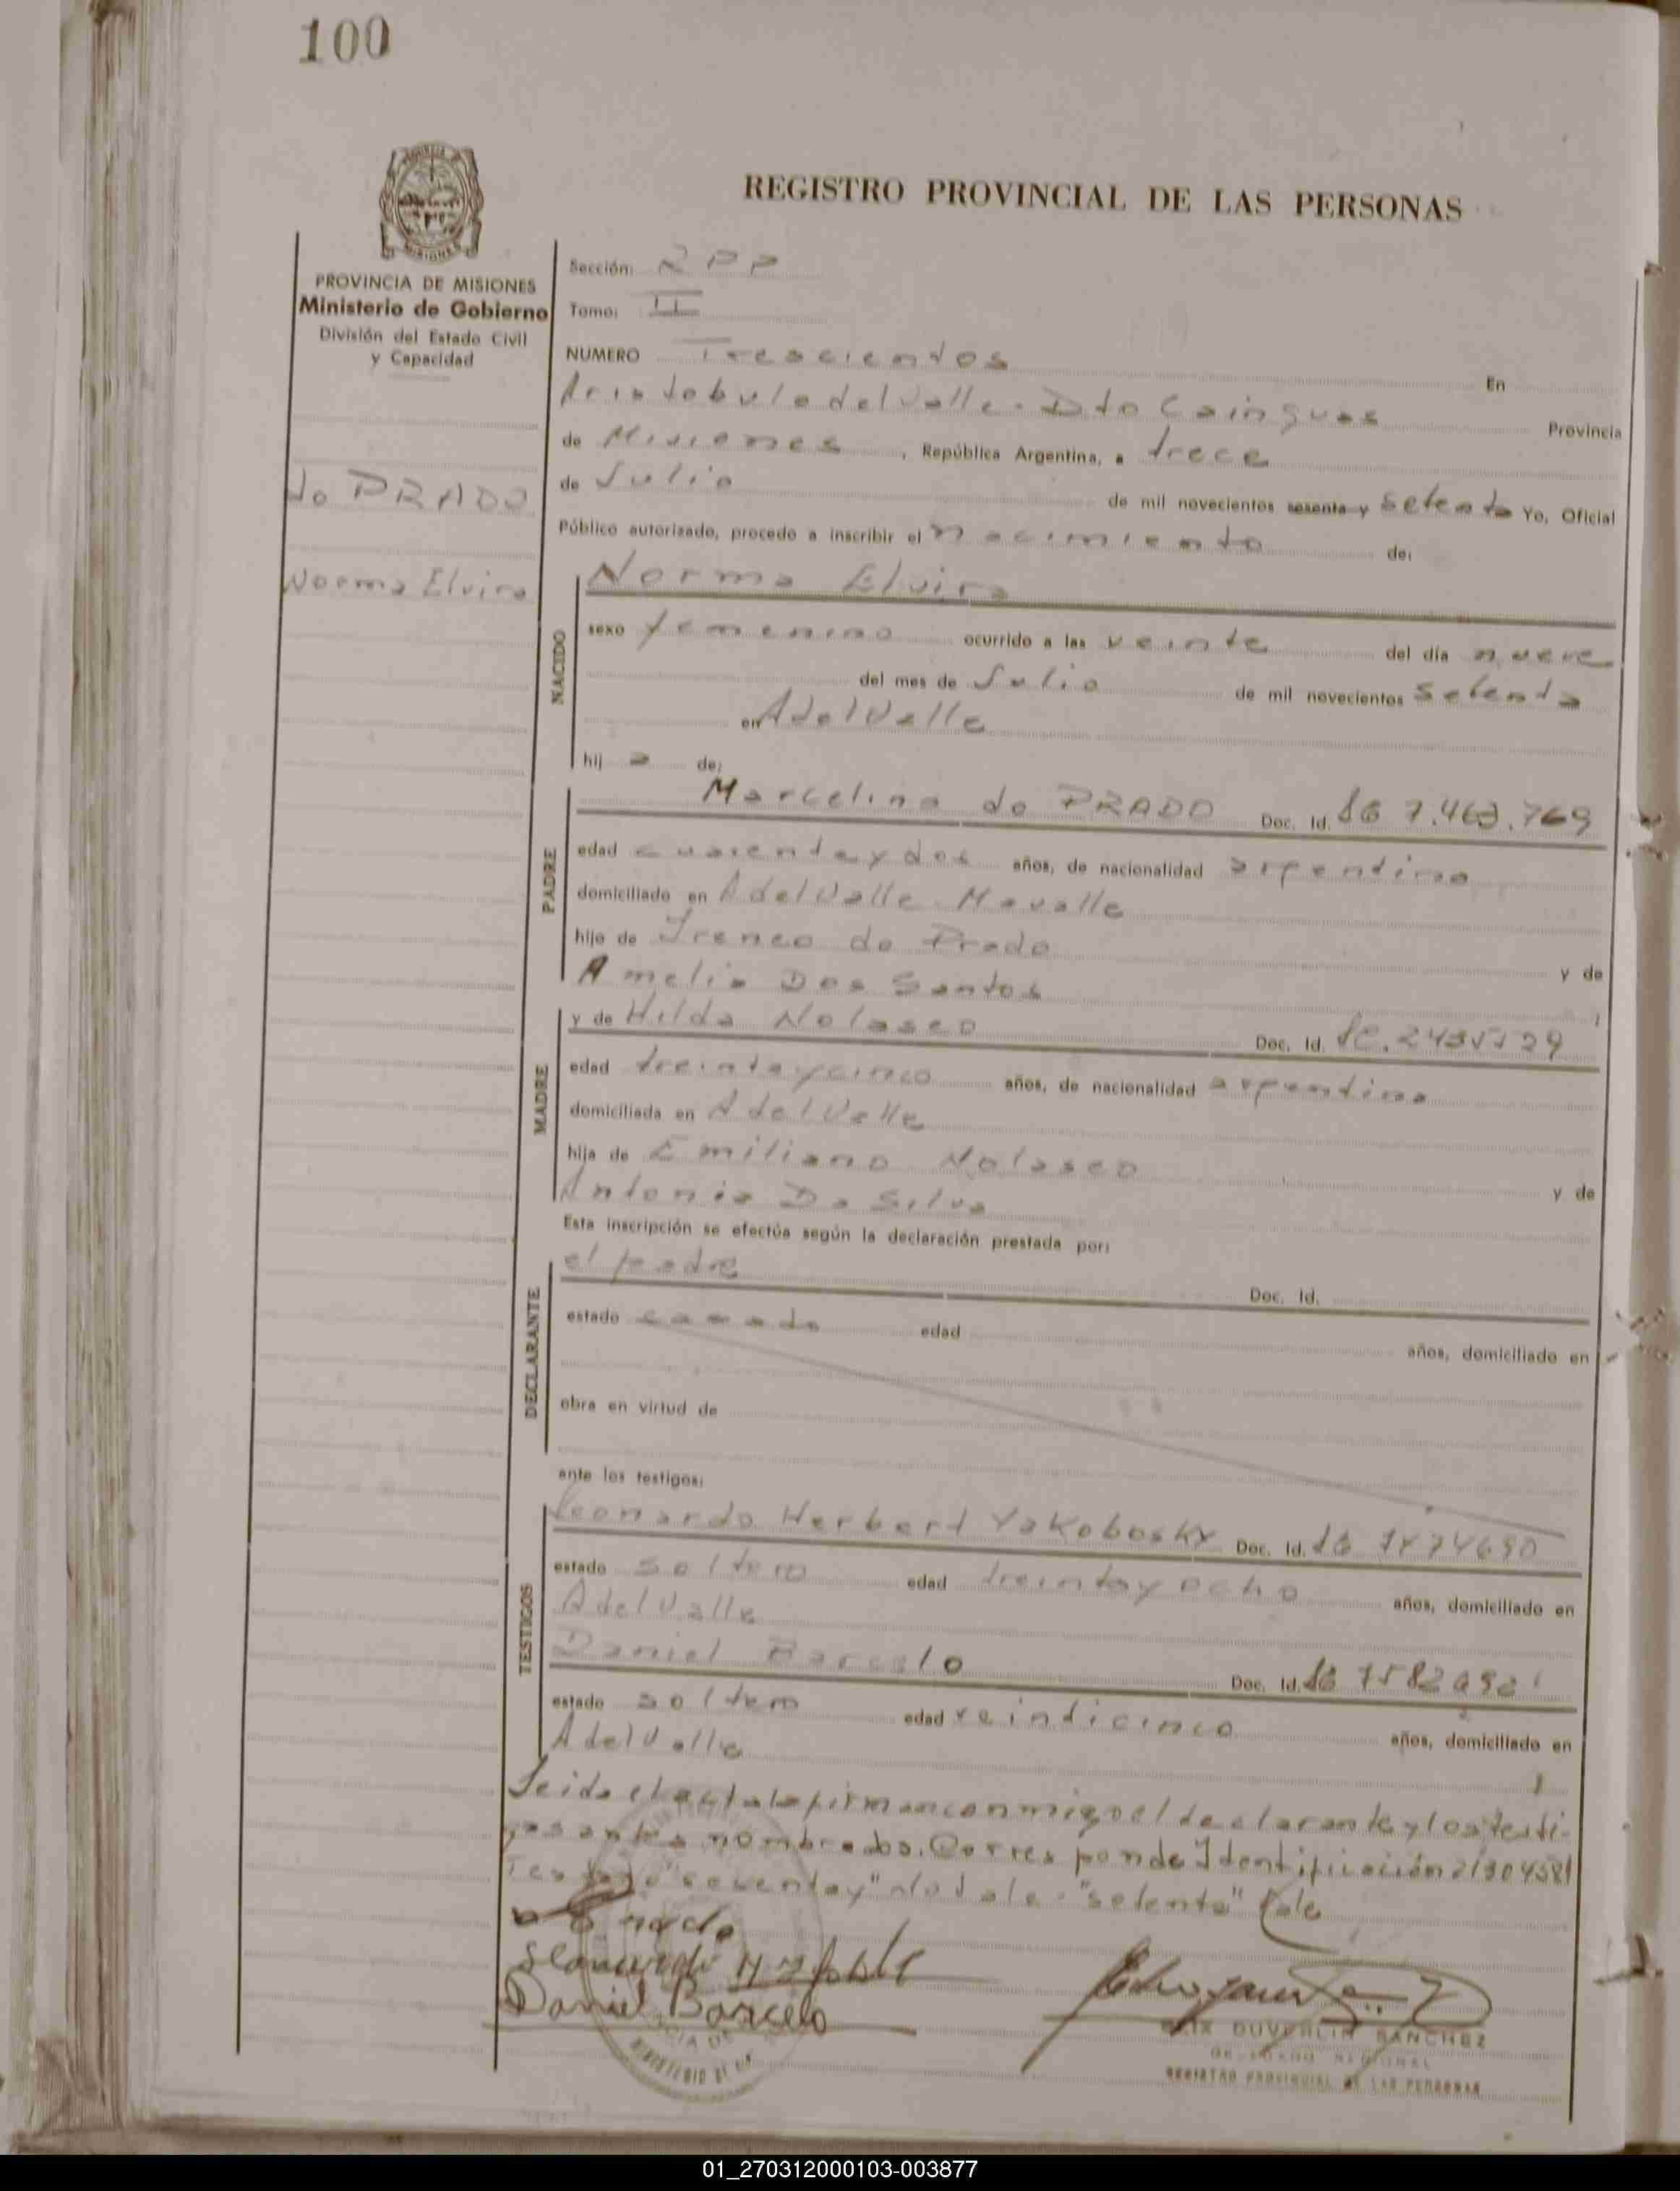 100
REGISTRO PROVINCIAL DE LAS PERSONAS
PROVINCIA DE MISIONES
Ministerio de Gobierno
División del Estado Civil
y Capacidad
do PRADO
Norma Elvira
Sección: RPP
Tomo: II
NUMERO Trescientos En
Aristobulo del Valle - Dto Cainguas Provincia
de Misiones, República Argentina, a trece
de Julio de mil novecientos sesenta y setenta Yo, Oficial
Público autorizado, procedo a inscribir el nacimiento de:
NACIDO
Norma Elvira
sexo femenino ocurrido a las veinte del día nueve
del mes de Julio de mil novecientos setenta
en A del Valle
hij a de:
PADRE
Marcelino do PRADO Doc. Id. 7.463.769
edad cuarenta y dos años, de nacionalidad argentino
domiciliado en A del Valle
hijo de Ireneo do Prado y de
Amelia Dos Santos
MADRE
y de Hilda Nolasco Doc. Id.
edad treinta y cinco años, de nacionalidad argentina
domiciliada en A del Valle
hija de Emiliano Nolasco y de
Antonia Da Silva
Esta inscripción se efectúa según la declaración prestada por:
DECLARANTE
el padre Doc. Id.
estado casado edad años, domiciliado en
obra en virtud de
ante los testigos:
TESTIGOS
Leonardo Herbert Yakobosky Doc. Id.
estado soltero edad treinta y ocho años, domiciliado en
A del Valle
Daniel Barcelo Doc. Id.
estado soltero edad veinticinco años, domiciliado en
A del Valle
Leida el acta la firman conmigo el declarante y los testi-
gos antes nombrados. Corresponde Identificación
Testado "sesenta y" No Vale - "setenta" Vale
Daniel Barcelo
DUVERLIN SANCHEZ
REGISTRO PROVINCIAL DE LAS PERSONAS
01_270312000103-003877